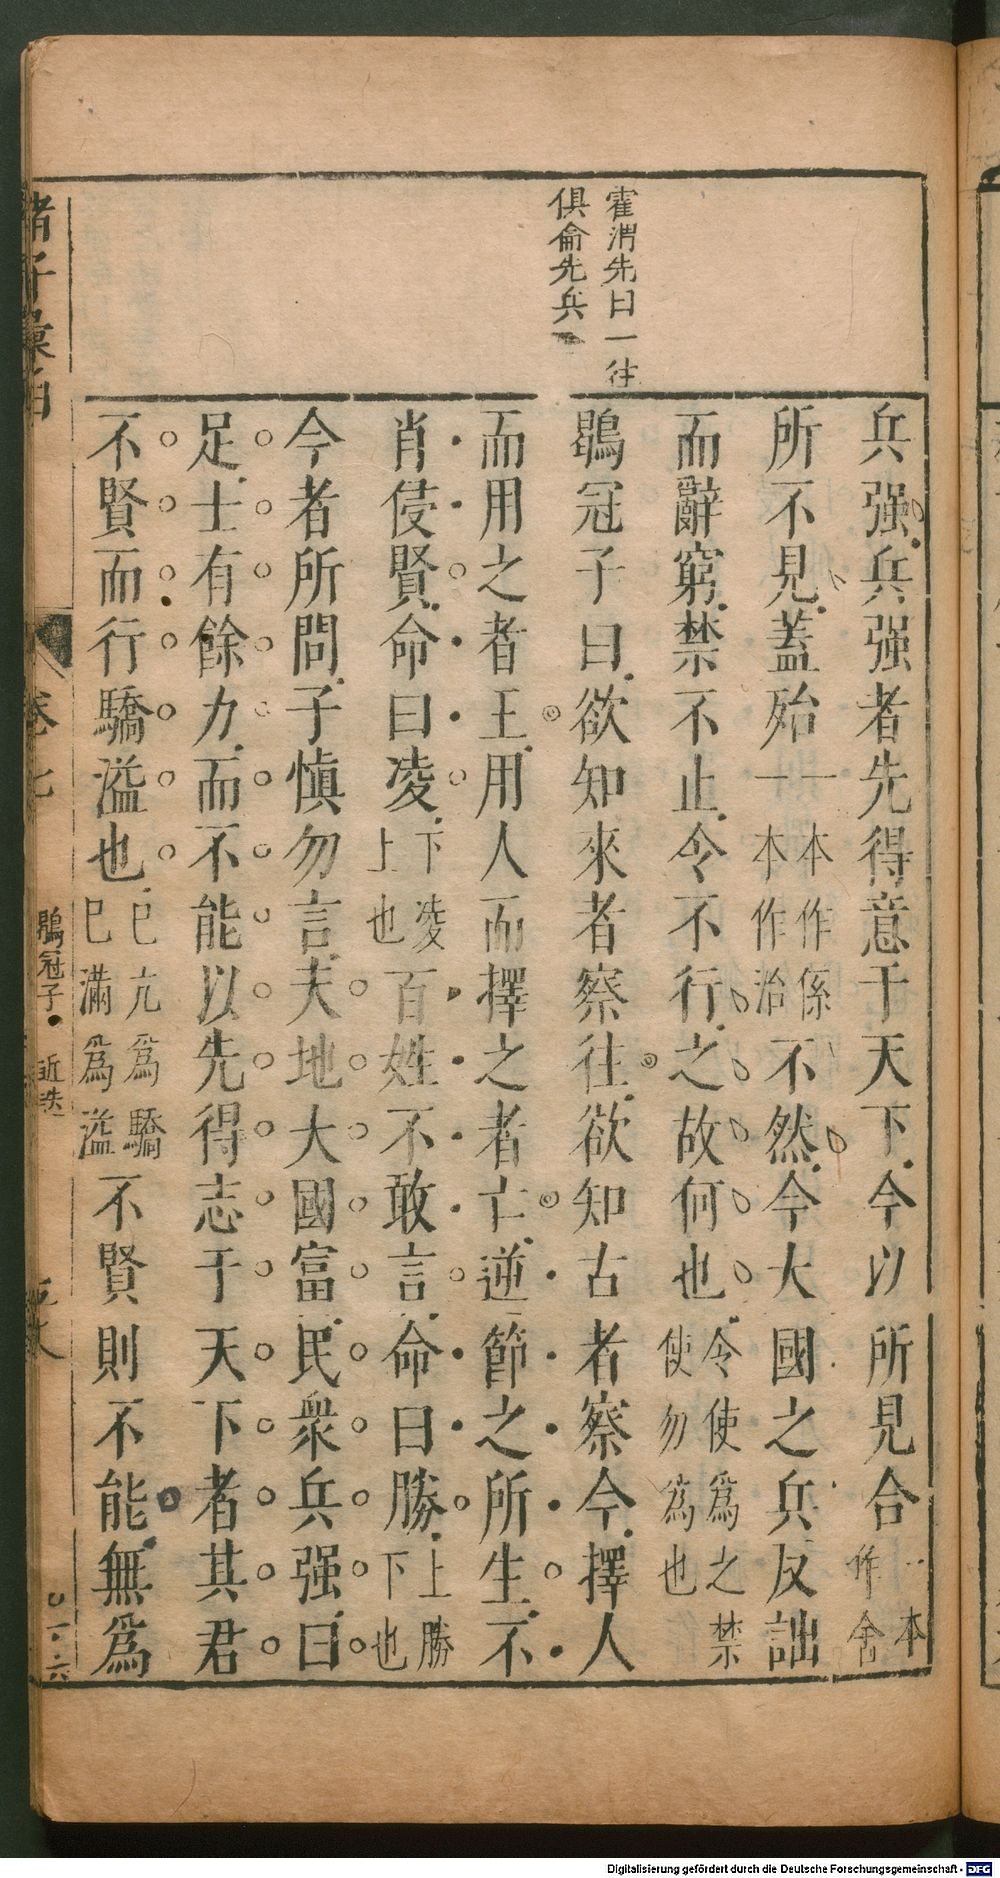 霍渭先曰一往
俱侖先兵
兵强兵强者先得意于天下今以所見合一本作舍
所不見蓋殆一本作係一本作治不然今大國之兵反詘
而辭窮禁不止令不行之故何也令使爲之禁使勿爲也
鶡冠子曰欲知來者察往欲知古者察今擇人
而用之者王用人而擇之者亡逆節之所生不
肖侵賢命曰凌下凌上也百姓不敢言命曰勝上勝下也
今者所問子慎勿言夫地大國富民衆兵强曰
足士有餘力而不能以先得志于天下者其君
不賢而行驕溢也已亢爲驕已滿爲溢不賢則不能無爲
諸子彙函
卷七
鶡冠子
近迭
Digitalisierung gefördert durch die Deutsche Forschungsgemeinschaft - DFG